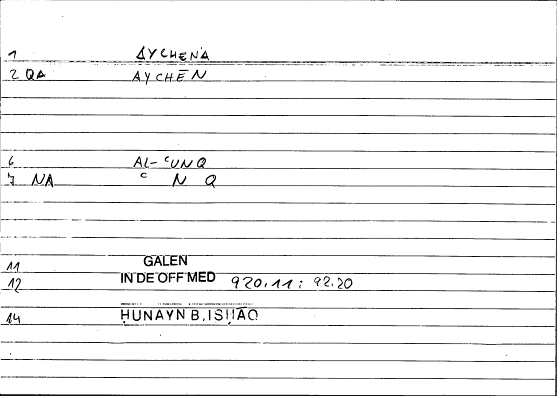 1 AYCHENA
2 QA AYCHEN
6 AL-ʿUNQ
7 NA ʿ N Q
11 GALEN
12 IN DE OFF MED 920,11 : 92.20
14 ḤUNAYN B. ISḤĀQ